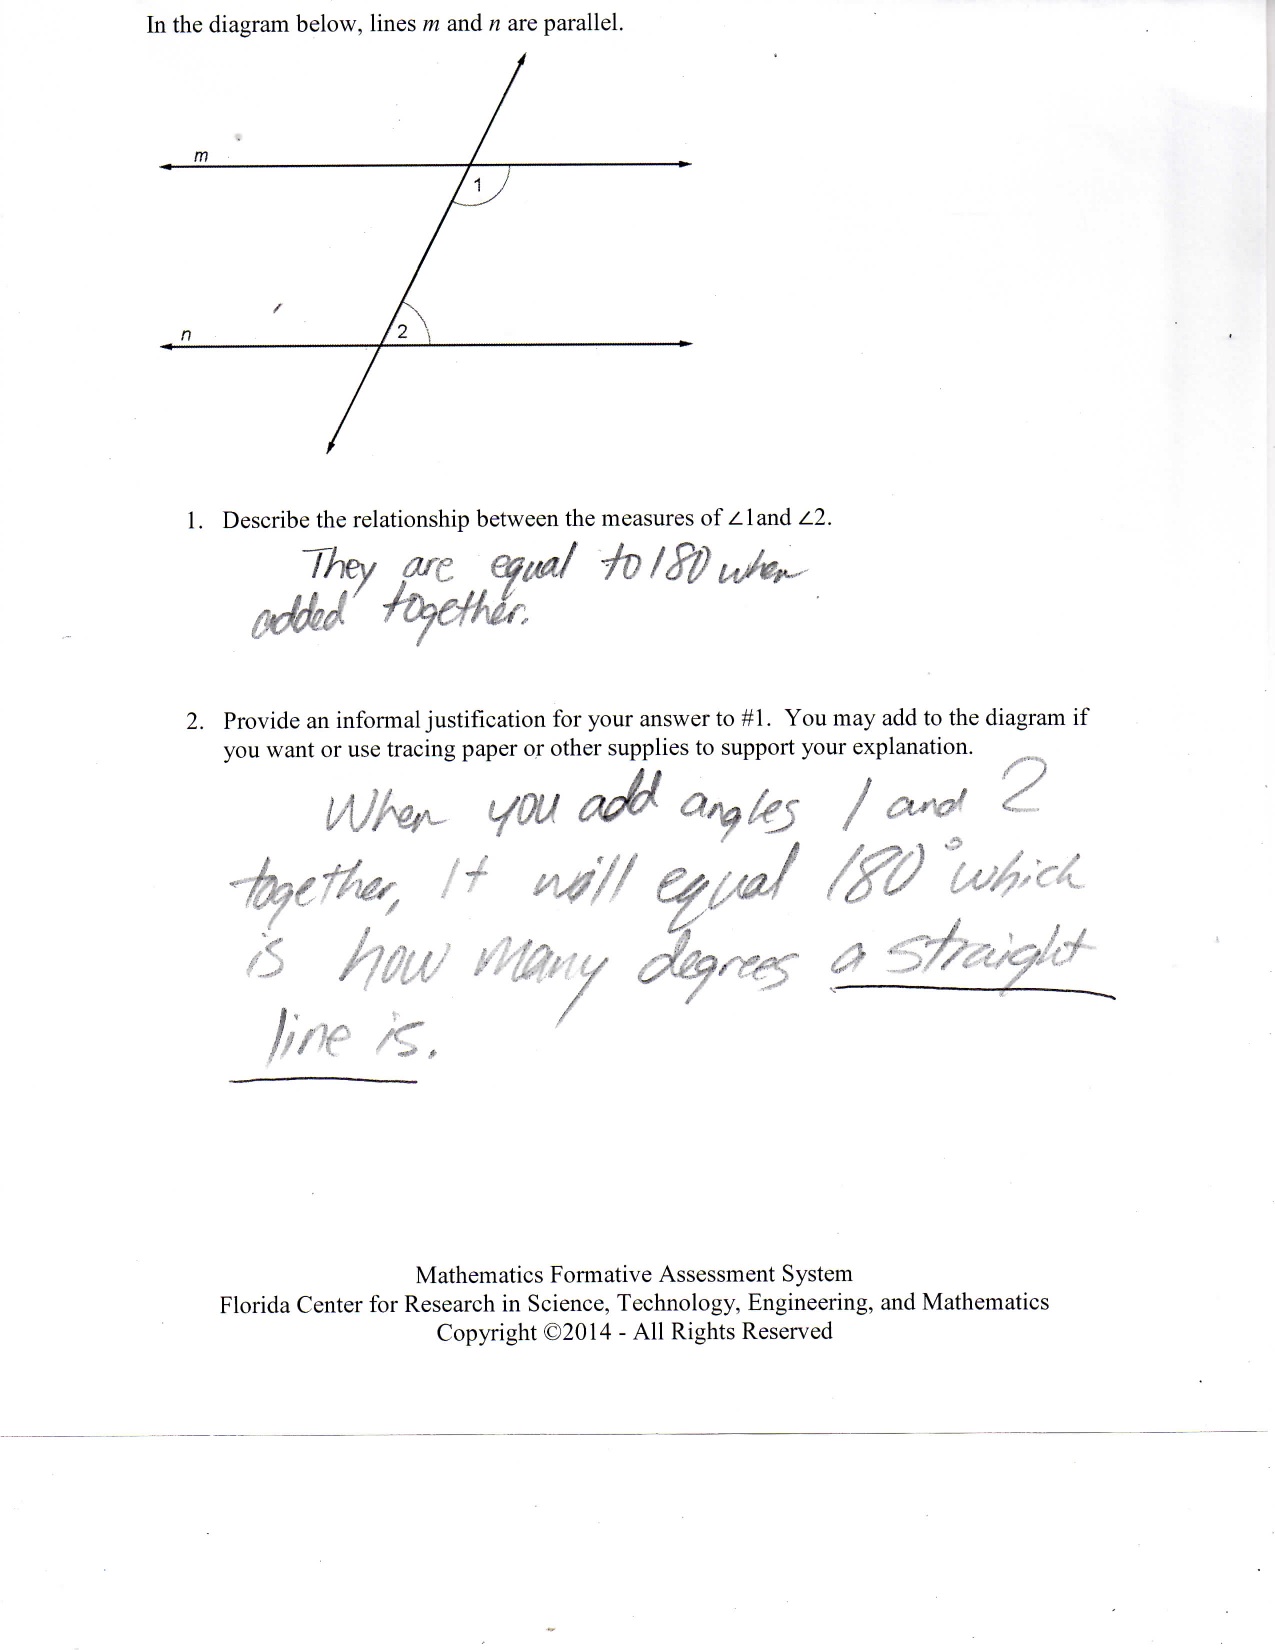 In the diagram below, lines m and n are parallel.
m
1
n
2
1. Describe the relationship between the measures of ∠1and ∠2.
They are equal to 180 when
added together.
2. Provide an informal justification for your answer to #1. You may add to the diagram if
you want or use tracing paper or other supplies to support your explanation.
When you add angles 1 and 2
together, It will equal 180° which
is how many degrees a straight
line is.
Mathematics Formative Assessment System
Florida Center for Research in Science, Technology, Engineering, and Mathematics
Copyright ©2014 - All Rights Reserved